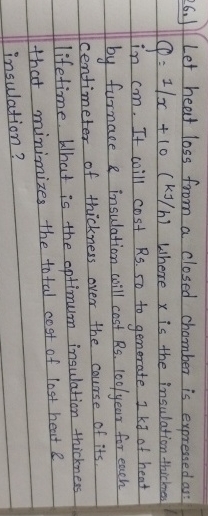 26.) Let heat loss from a closed chamber is expressed as:
Q = 1/x + 10 (kJ/h) Where x is the insulation thicknes
in cm. It will cost Rs. 50 to generate 1 kJ of heat
by furnace & insulation will cost Rs. 100/year for each
centimeter of thickness over the course of its
lifetime. What is the optimum insulation thickness
that minimizes the total cost of lost heat &
insulation?